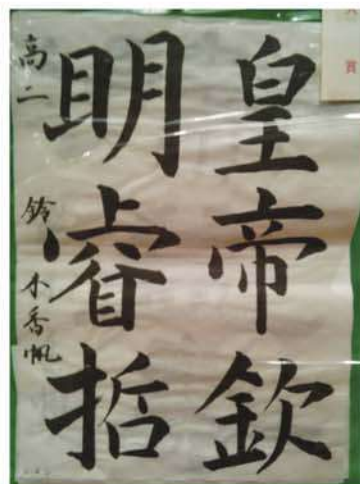 賞
皇帝欽
明睿哲
高二 鈴木香帆